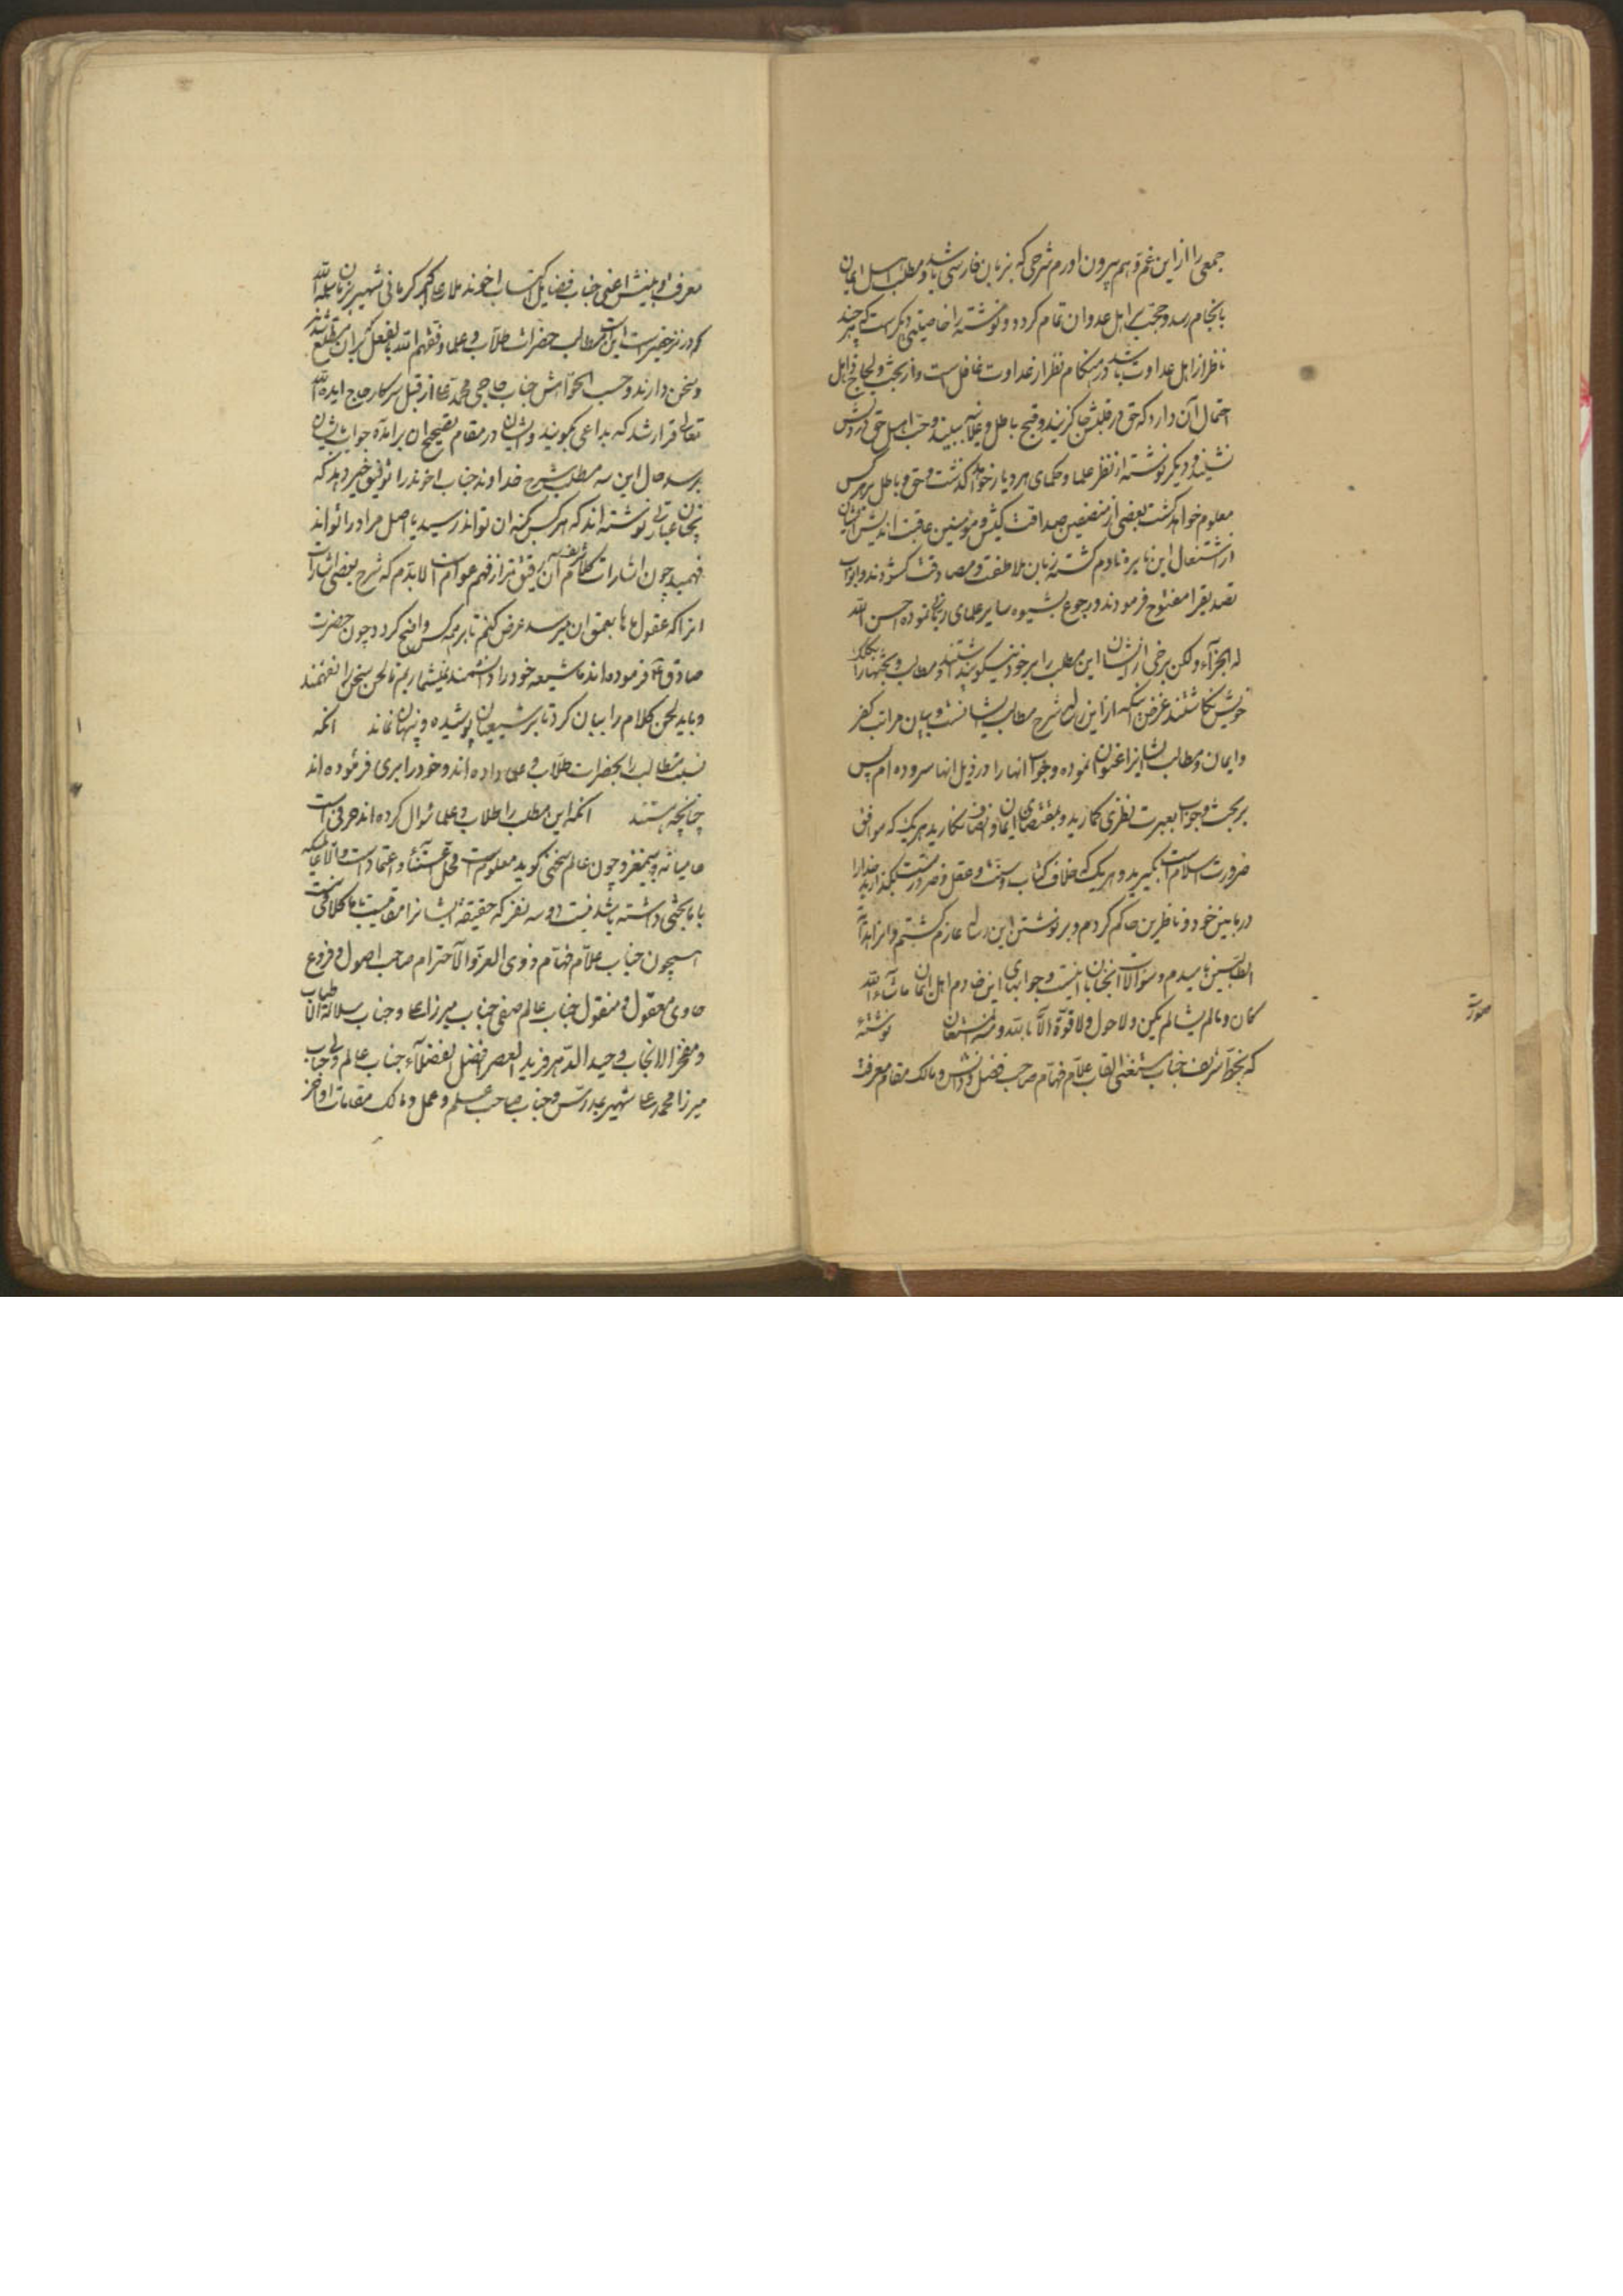 جمعی را از این غم و هم بیرون اورم شرحی که بزبان فارسی باشد و مطلب اهل ایمان
بانجام رسد و حجت بر اهل عدوان تمام کردد و نوشته را خاصیتی دیکر است که هر چند
ناظر از اهل عداوت باشد در هنکام نظر از عداوت غافل است و از بحث و لجاج ذاهل
احتمال آن دارد که حق در قلبش جا کزیند و قبح باطل و علانیه ببیند و حب اهل حق در دلش
نشیند و دیکر نوشته از نظر علما و حکمای هر دیار خواهد کذشت و حق و باطل بر هر کس
معلوم خواهد کشت بعضی از منصفین صداقت کیش و مؤمنین عاقبت اندیش ایشان
از اشتعال این نایره نادم کشته زبان ملاطفت و مصادقت کشودند و ابواب
تصدیق را مفتوح فرمودند و رجوع بشیوه سایر علمای ربانی نموده احسن الله
له الجزآء ولکن برخی از ایشان این مطلب را بر خود نیکو پنداشتند و مطالب و بحثها را بکلک
خویش نکاشتند غرض آنکه مراد از این رساله شرح مطالب ایشانست و بیان مراتب کفر
و ایمان و مطالب ایشانرا عنوان نموده و جواب انها را در ذیل انها سروده ام پس
بر بحث و جواب بعبرت نظری کمارید و بمقتضای ایمان و انصاف نکارید هر یک که موافق
ضرورت اسلام است بکیرید و هر یک که خلاف کتاب و سنت و عقل و ضرورتست بکذارید خدا را
در مابین خود و ناظرین حاکم کردم و بر نوشتن این رساله عازم کشتم و از ائمه
الطیبین نامیدم و سؤالات انجنابان اینست و جوابهای این خادم اهل ایمان ماشآء الله
کان و ما لم یشأ لم یکن و لا حول و لا قوة الا بالله و هو المستعان نوشته
که بخط شریف جناب مستغنی القاب علام فهام صاحب فضل و دانش و مالک مقام معرفت
صورت
معرفت و بینش اعنی جناب فضایل اکتساب اخوند ملا علی اکبر کرمانی شهیر بزمان سلمه الله
که در نزد حقیر است این مطالب حضرات طلاب و علما وفقهم الله بالفعل بر آن مطلع شدند
و سخن دارند و حسب الخواهش جناب حاجی محمد تقی از قبل سرکار حاج ایده الله
تعالی قرار شد که بداعی بکویند و ایشان در مقام تصحیح ان برامده جواب بایشان
برسد حال این سه مطلب بشرح خداوند جناب اخوند را توفیق خیر دهد که
چنان عبارتی نوشته اند که هر کس بکنه ان تواند رسید یا اصل مراد را تواند
فهمید چون اشارات کلام شریف آن دقیق تر از فهم عوام است لابدم که شرح بعضی اشارات
انرا که عقول ما بعمق ان میرسد عرض کنم تا بر همه کس واضح کردد چون حضرت
صادق ع فرموده اند ما شیعه خود را دانشمند نمیشماریم تا لحن سخن را نفهمند
و باید لحن کلام را بیان کرد تا بر شیعیان پوشیده و پنهان نماند انکه
نسبت مطالب را بحضرات طلاب و علما داده اند و خود را بری فرموده اند
چنانچه هستند انکه این مطلب را طلاب و علما سؤال کرده اند حرفی است
عامیانه و بیمغز و چون عالم سخنی کوید معلوم است و محل اعتنآء و اعتماد است و الا
با ما بحثی داشته باشد نیست دو سه نفر که حقیقة ایشانرا مقامیست با ما کلامی نیست
همچون جناب علام فهام و ذوی العز و الاحترام صاحب اصول و فروع
حاوی معقول و منقول جناب عالم صفی جناب میرزا علی و جناب سلالة الاطیاب
و مفخر الانجاب وحید الدهر فرید العصر افضل الفضلآء جناب عالم ولی جناب
میرزا محمد رضا شهیر بمدرس و جناب صاحب علم و عمل و مالک مقامات